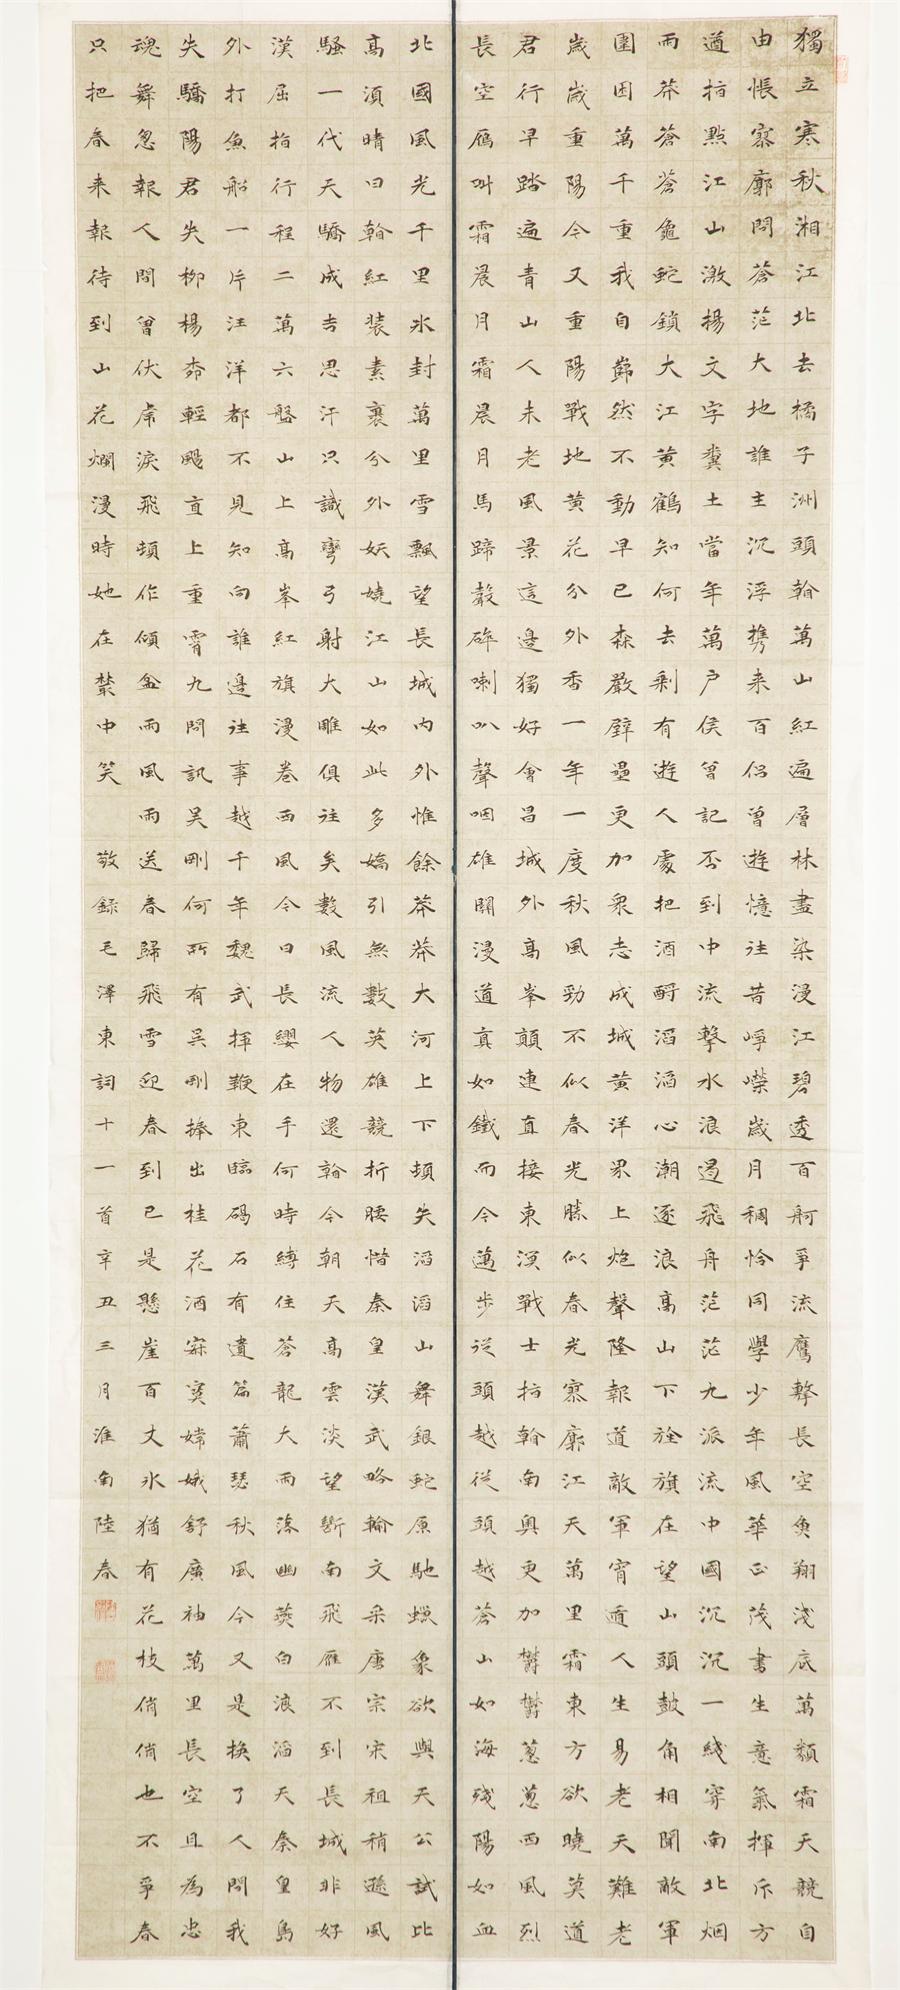 獨立寒秋湘江北去橘子洲頭看萬山紅遍層林盡染漫江碧透百舸爭流鷹擊長空魚翔淺底萬類霜天競自
由悵寥廓問蒼茫大地誰主沉浮攜來百侶曾遊憶往昔崢嶸歲月稠恰同學少年風華正茂書生意氣揮斥方
遒指點江山激揚文字糞土當年萬戶侯曾記否到中流擊水浪遏飛舟茫茫九派流中國沉沉一綫穿南北烟
雨莽蒼蒼龜蛇鎖大江黃鶴知何去剩有遊人處把酒酹滔滔心潮逐浪高山下旌旗在望山頭鼓角相聞敵軍
圍困萬千重我自巋然不動早已森嚴壁壘更加衆志成城黃洋界上炮聲隆報道敵軍宵遁人生易老天難老
歲歲重陽今又重陽戰地黃花分外香一年一度秋風勁不似春光勝似春光寥廓江天萬里霜東方欲曉莫道
君行早踏遍青山人未老風景這邊獨好會昌城外高峯顛連直接東溟戰士指看南粵更加鬱鬱蔥蔥西風烈
長空雁叫霜晨月霜晨月馬蹄聲碎喇叭聲咽雄關漫道真如鐵而今邁步從頭越從頭越蒼山如海殘陽如血
北國風光千里冰封萬里雪飄望長城內外惟餘莽莽大河上下頓失滔滔山舞銀蛇原馳蠟象欲與天公試比
高須晴日看紅裝素裹分外妖嬈江山如此多嬌引無數英雄競折腰惜秦皇漢武略輸文采唐宗宋祖稍遜風
騷一代天驕成吉思汗只識彎弓射大雕俱往矣數風流人物還看今朝天高雲淡望斷南飛雁不到長城非好
漢屈指行程二萬六盤山上高峯紅旗漫卷西風今日長纓在手何時縛住蒼龍大雨落幽燕白浪滔天秦皇島
外打魚船一片汪洋都不見知向誰邊往事越千年魏武揮鞭東臨碣石有遺篇蕭瑟秋風今又是換了人間我
失驕陽君失柳楊柳輕颺直上重霄九問訊吳剛何所有吳剛捧出桂花酒寂寞嫦娥舒廣袖萬里長空且為忠
魂舞忽報人間曾伏虎淚飛頓作傾盆雨風雨送春歸飛雪迎春到已是懸崖百丈冰猶有花枝俏俏也不爭春
只把春來報待到山花爛漫時她在叢中笑 敬錄毛澤東詞十一首辛丑三月淮南陸春